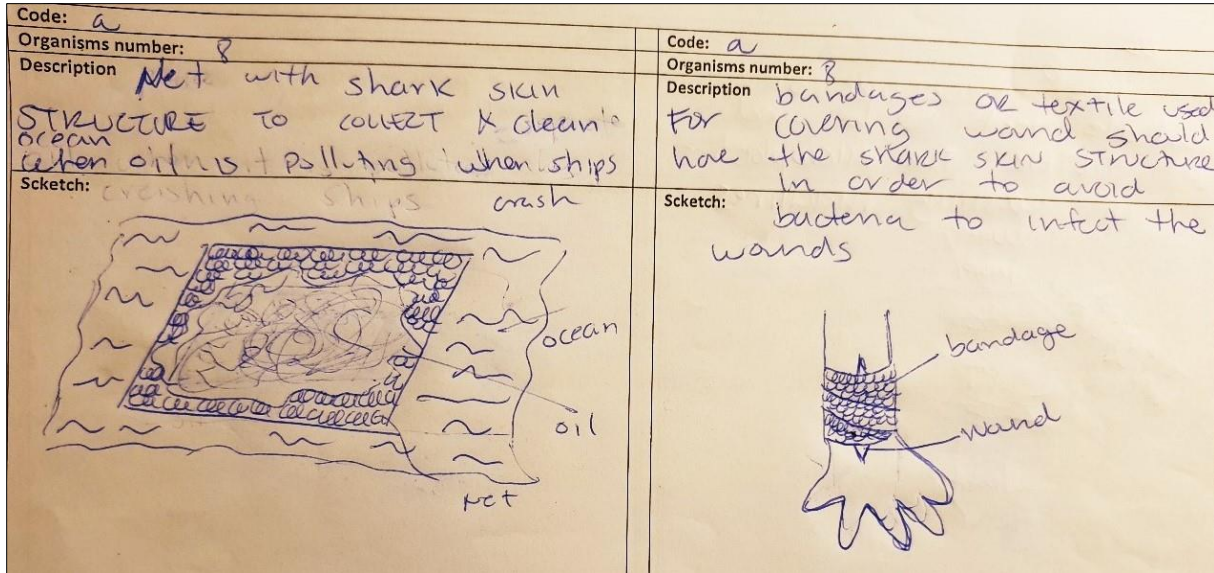 Code: a
Organisms number: 8
Description Net with shark skin
STRUCTURE TO COLLECT & clean
ocean
when oil is polluting when ships
Scketch: crashing ships crash
ocean
oil
Net
Code: a
Organisms number: 8
Description bandages or textile used
For covering wand should
have the shark skin structure
In order to avoid
Scketch: bacteria to infect the
wands
bandage
wand